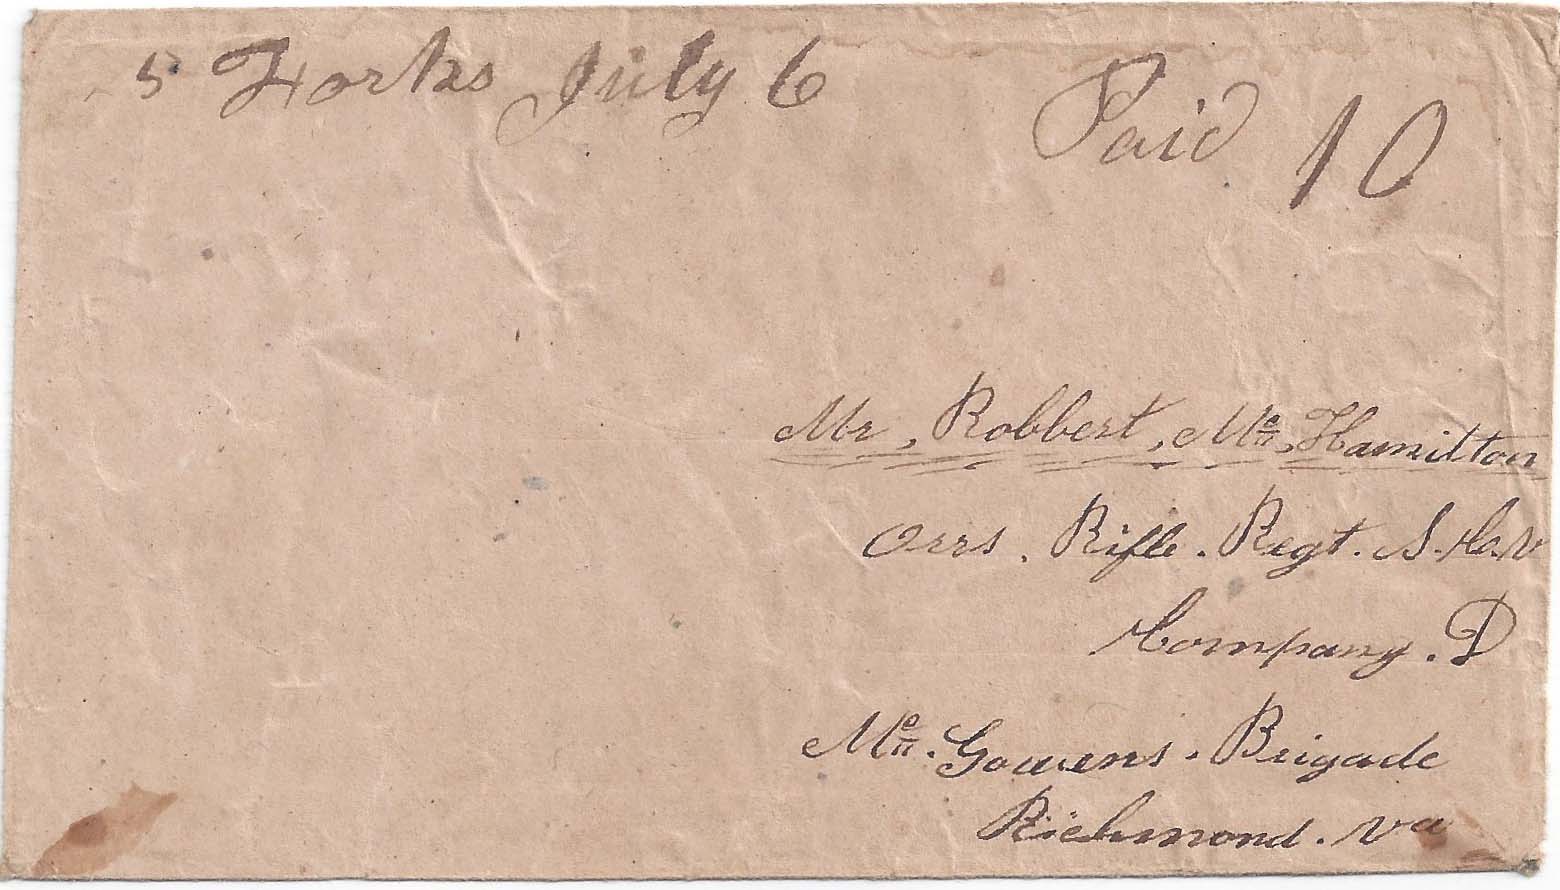 5 Forks July 6
Paid 10
Mr, Robbert, Mc, Hamilton
Orrs. Rifle. Regt. S. Ca. V
Company. D
Mc. Gowens. Brigade
Richmond. Va